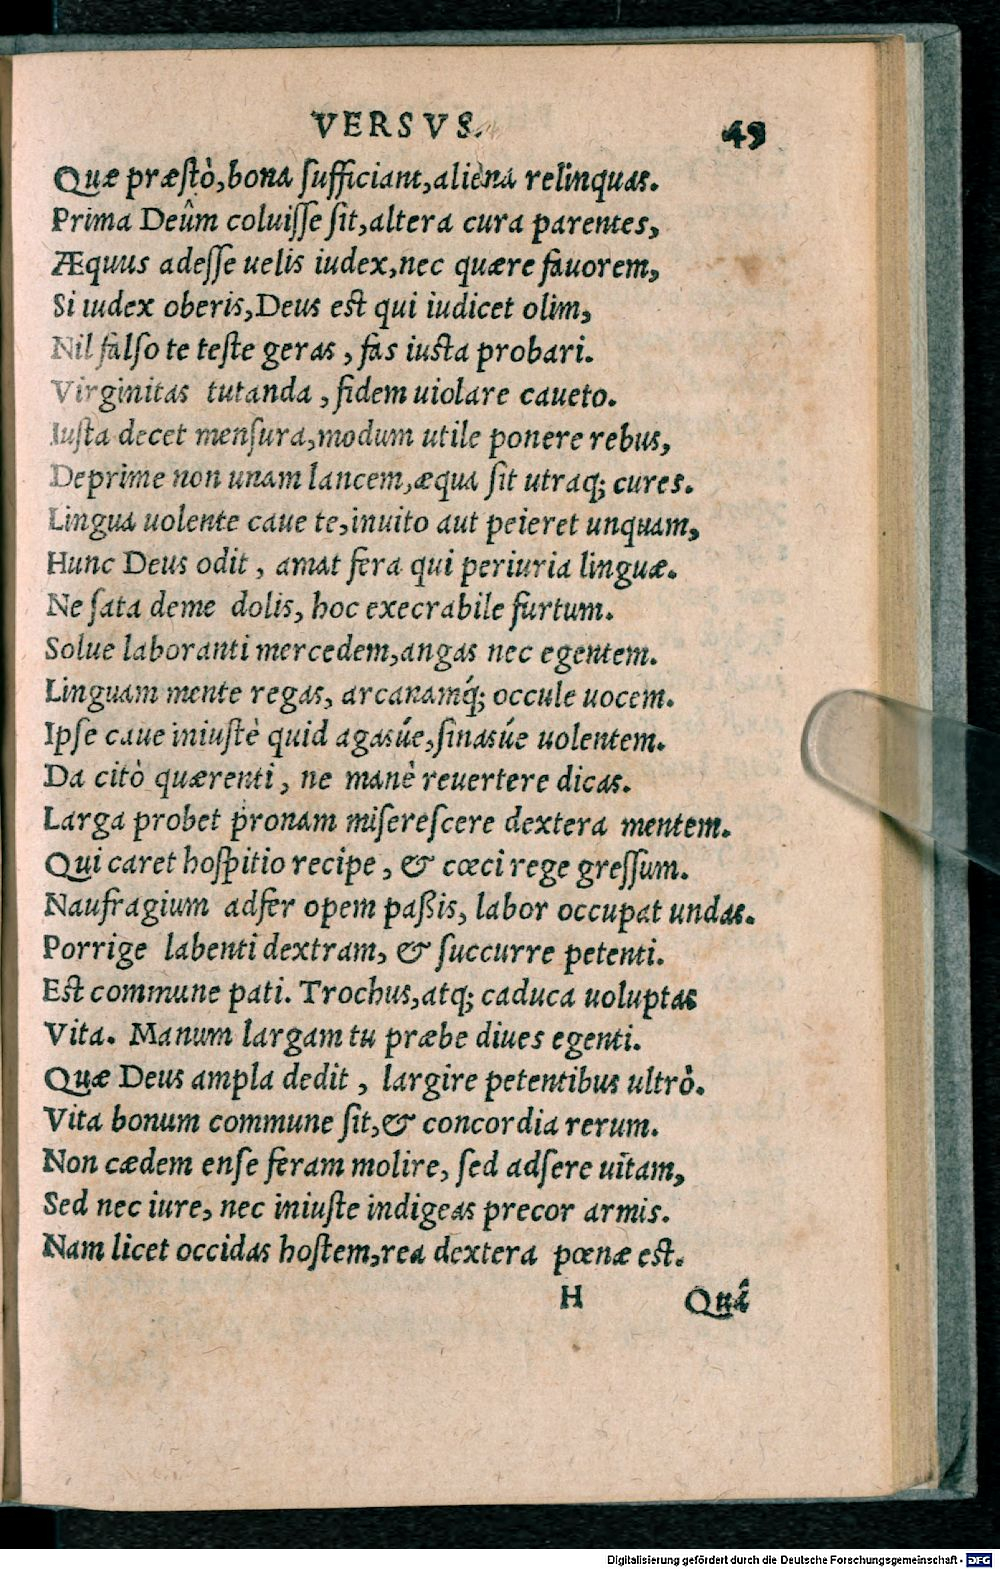 VERSVS. 49
Quæ præstò,bona sufficiant,aliena relinquas.
Prima Deûm coluisse sit,altera cura parentes,
Æquus adesse uelis iudex,nec quære fauorem,
Si iudex oberis,Deus est qui iudicet olim,
Nil falso te teste geras , fas iusta probari.
Virginitas tutanda , fidem uiolare caueto.
Iusta decet mensura,modum utile ponere rebus,
Deprime non unam lancem,æqua sit utraq; cures.
Lingua uolente caue te,inuito aut peieret unquam,
Hunc Deus odit , amat fera qui periuria linguæ.
Ne sata deme dolis, hoc execrabile furtum.
Solue laboranti mercedem,angas nec egentem.
Linguam mente regas, arcanamq́; occule uocem.
Ipse caue iniustè quid agasúe,sinasúe uolentem.
Da citò quærenti , ne manè reuertere dicas.
Larga probet pronam miserescere dextera mentem.
Qui caret hospitio recipe , & cœci rege gressum.
Naufragium adfer opem paßis, labor occupat undas.
Porrige labenti dextram, & succurre petenti.
Est commune pati. Trochus,atq; caduca uoluptas
Vita. Manum largam tu præbe diues egenti.
Quæ Deus ampla dedit , largire petentibus ultrò.
Vita bonum commune sit,& concordia rerum.
Non cædem ense feram molire, sed adsere uitam,
Sed nec iure, nec iniuste indigeas precor armis.
Nam licet occidas hostem,rea dextera pœnæ est.
H Quâ
Digitalisierung gefördert durch die Deutsche Forschungsgemeinschaft - DFG